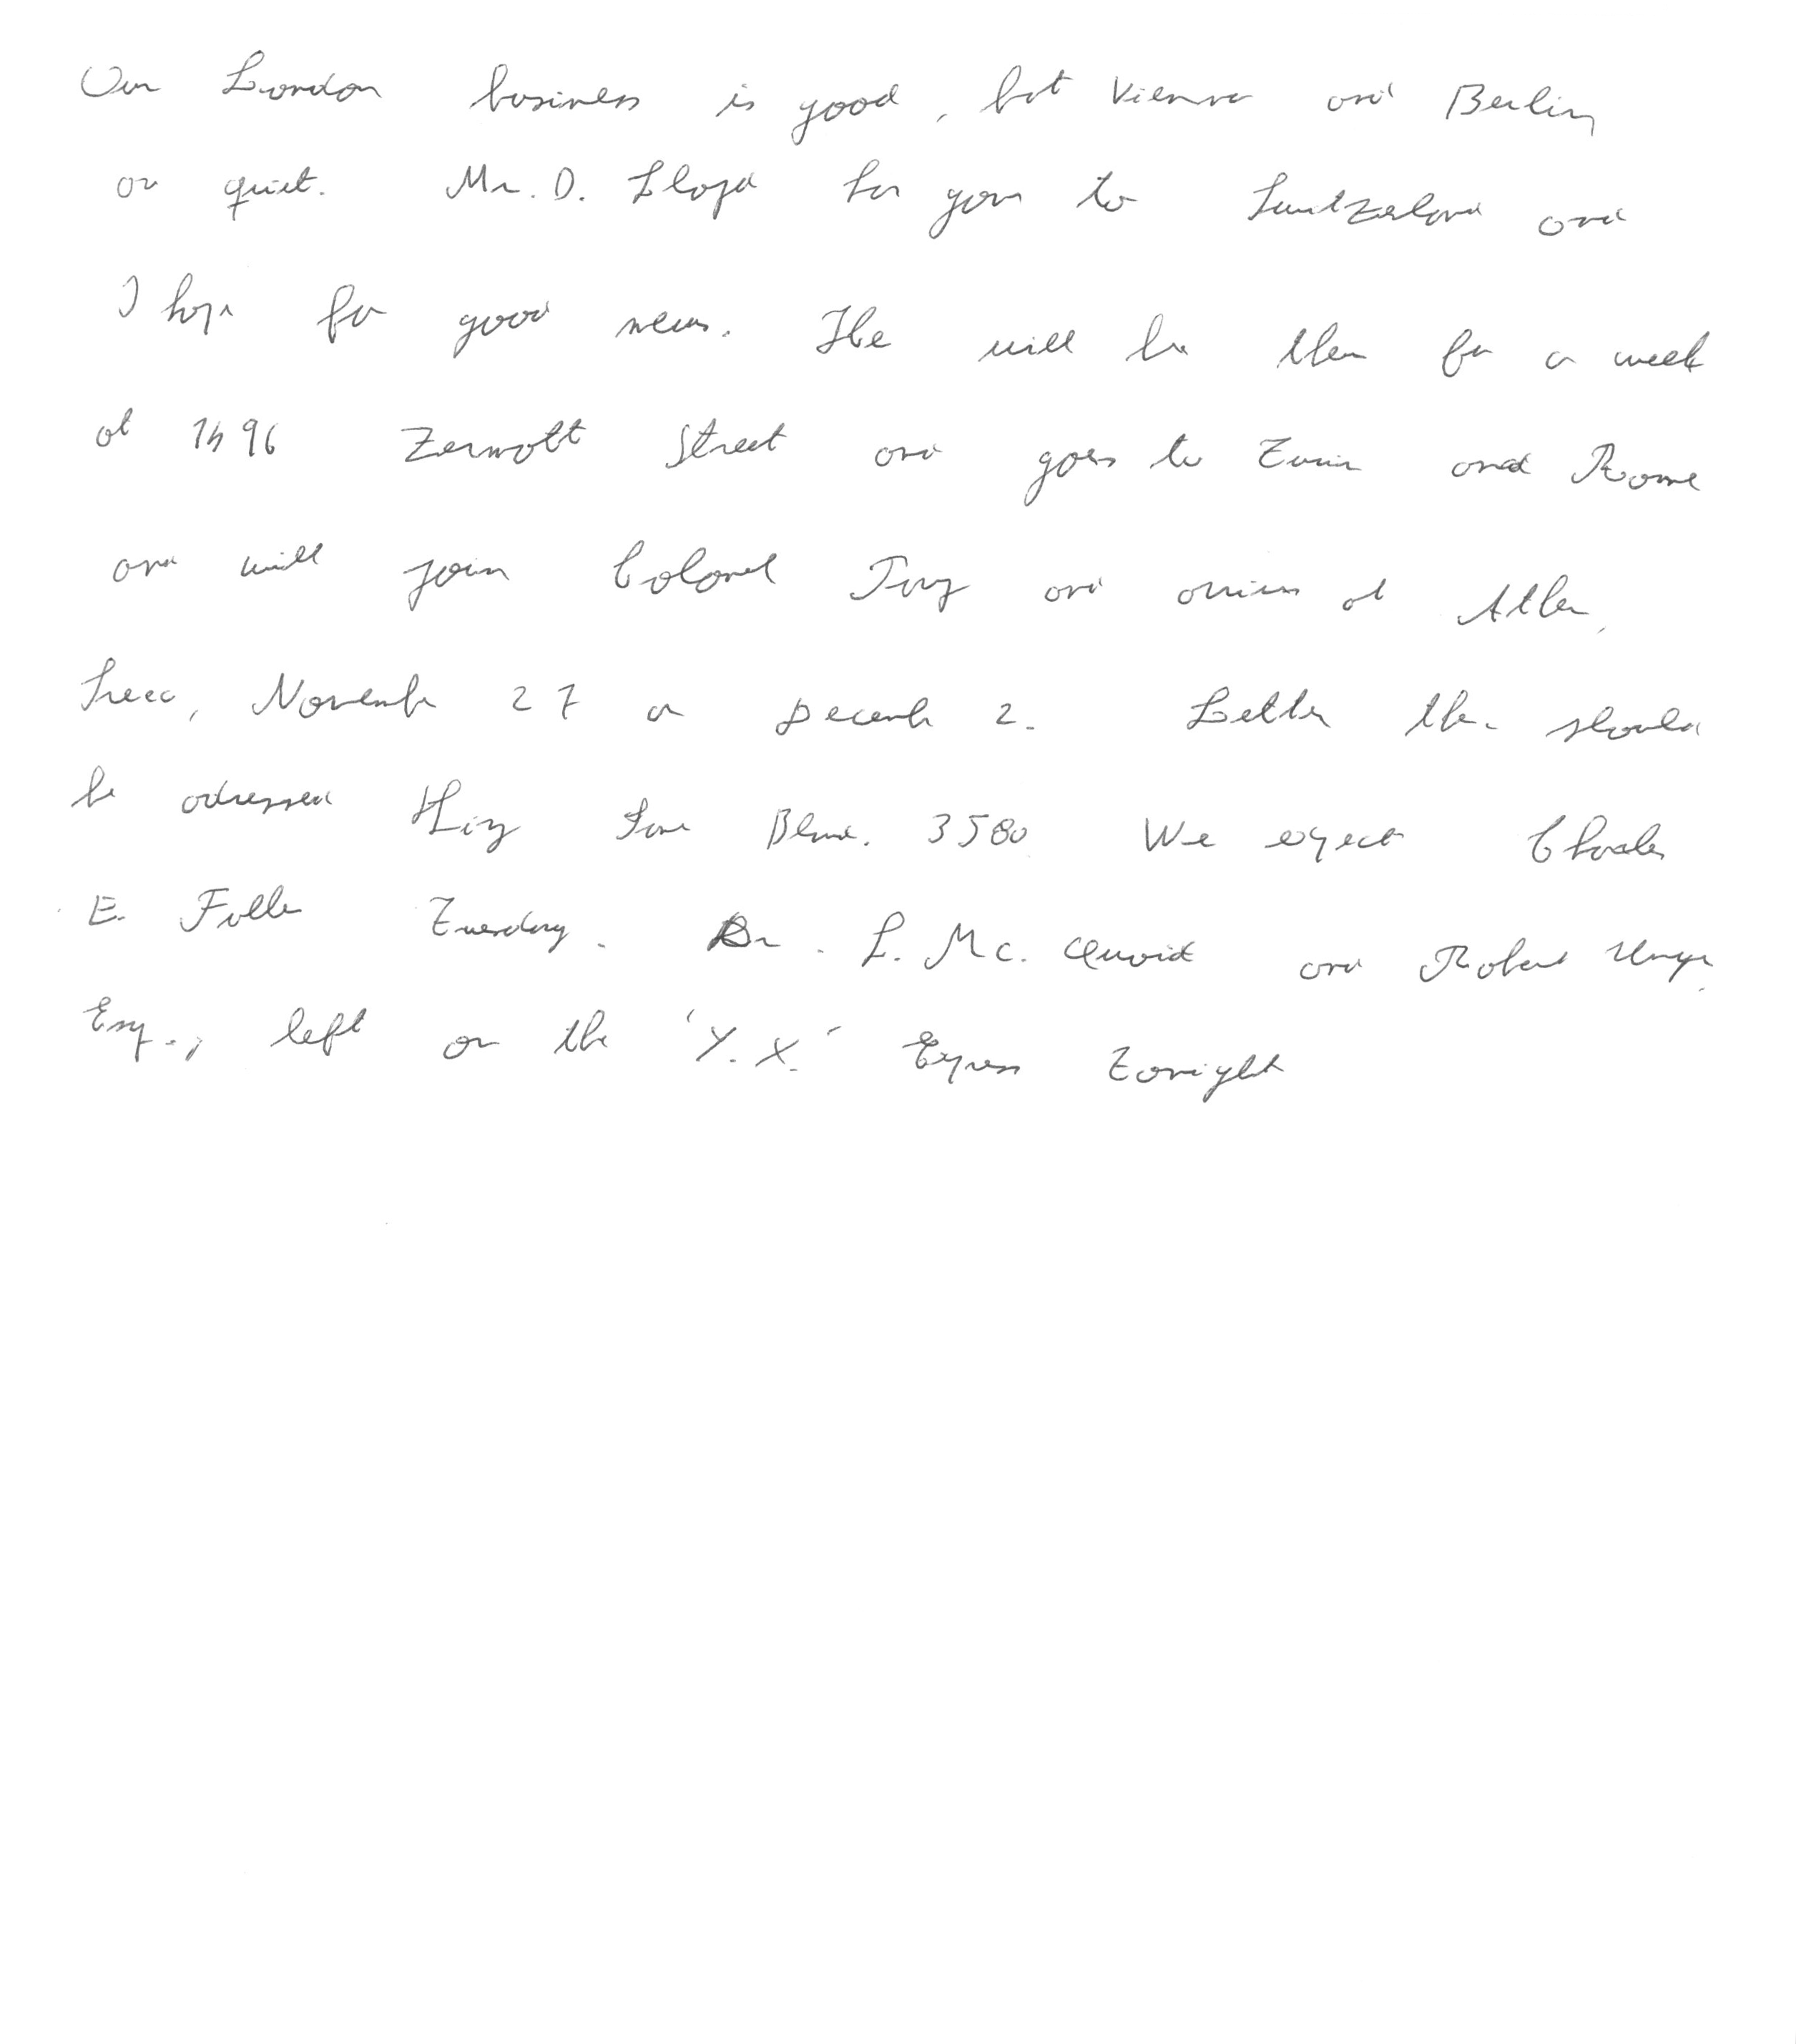 Our London business is good, but Vienna and Berlin
are quiet. Mr. D. Lloyd has gone to Switzerland and
I hope for good news. He will be there for a week
at 1496 Zermott Street and goes to Turin and Rome
and will join Colonel Parry and arrive at Athens,
Greece, November 27 or December 2. Letters there should
be addressed King James Blvd. 3580 We expect Charles
E. Fuller Tuesday. Dr. L. Mc. Quaid and Robert Unger,
Esq., left on the 'Y.X.' Express tonight